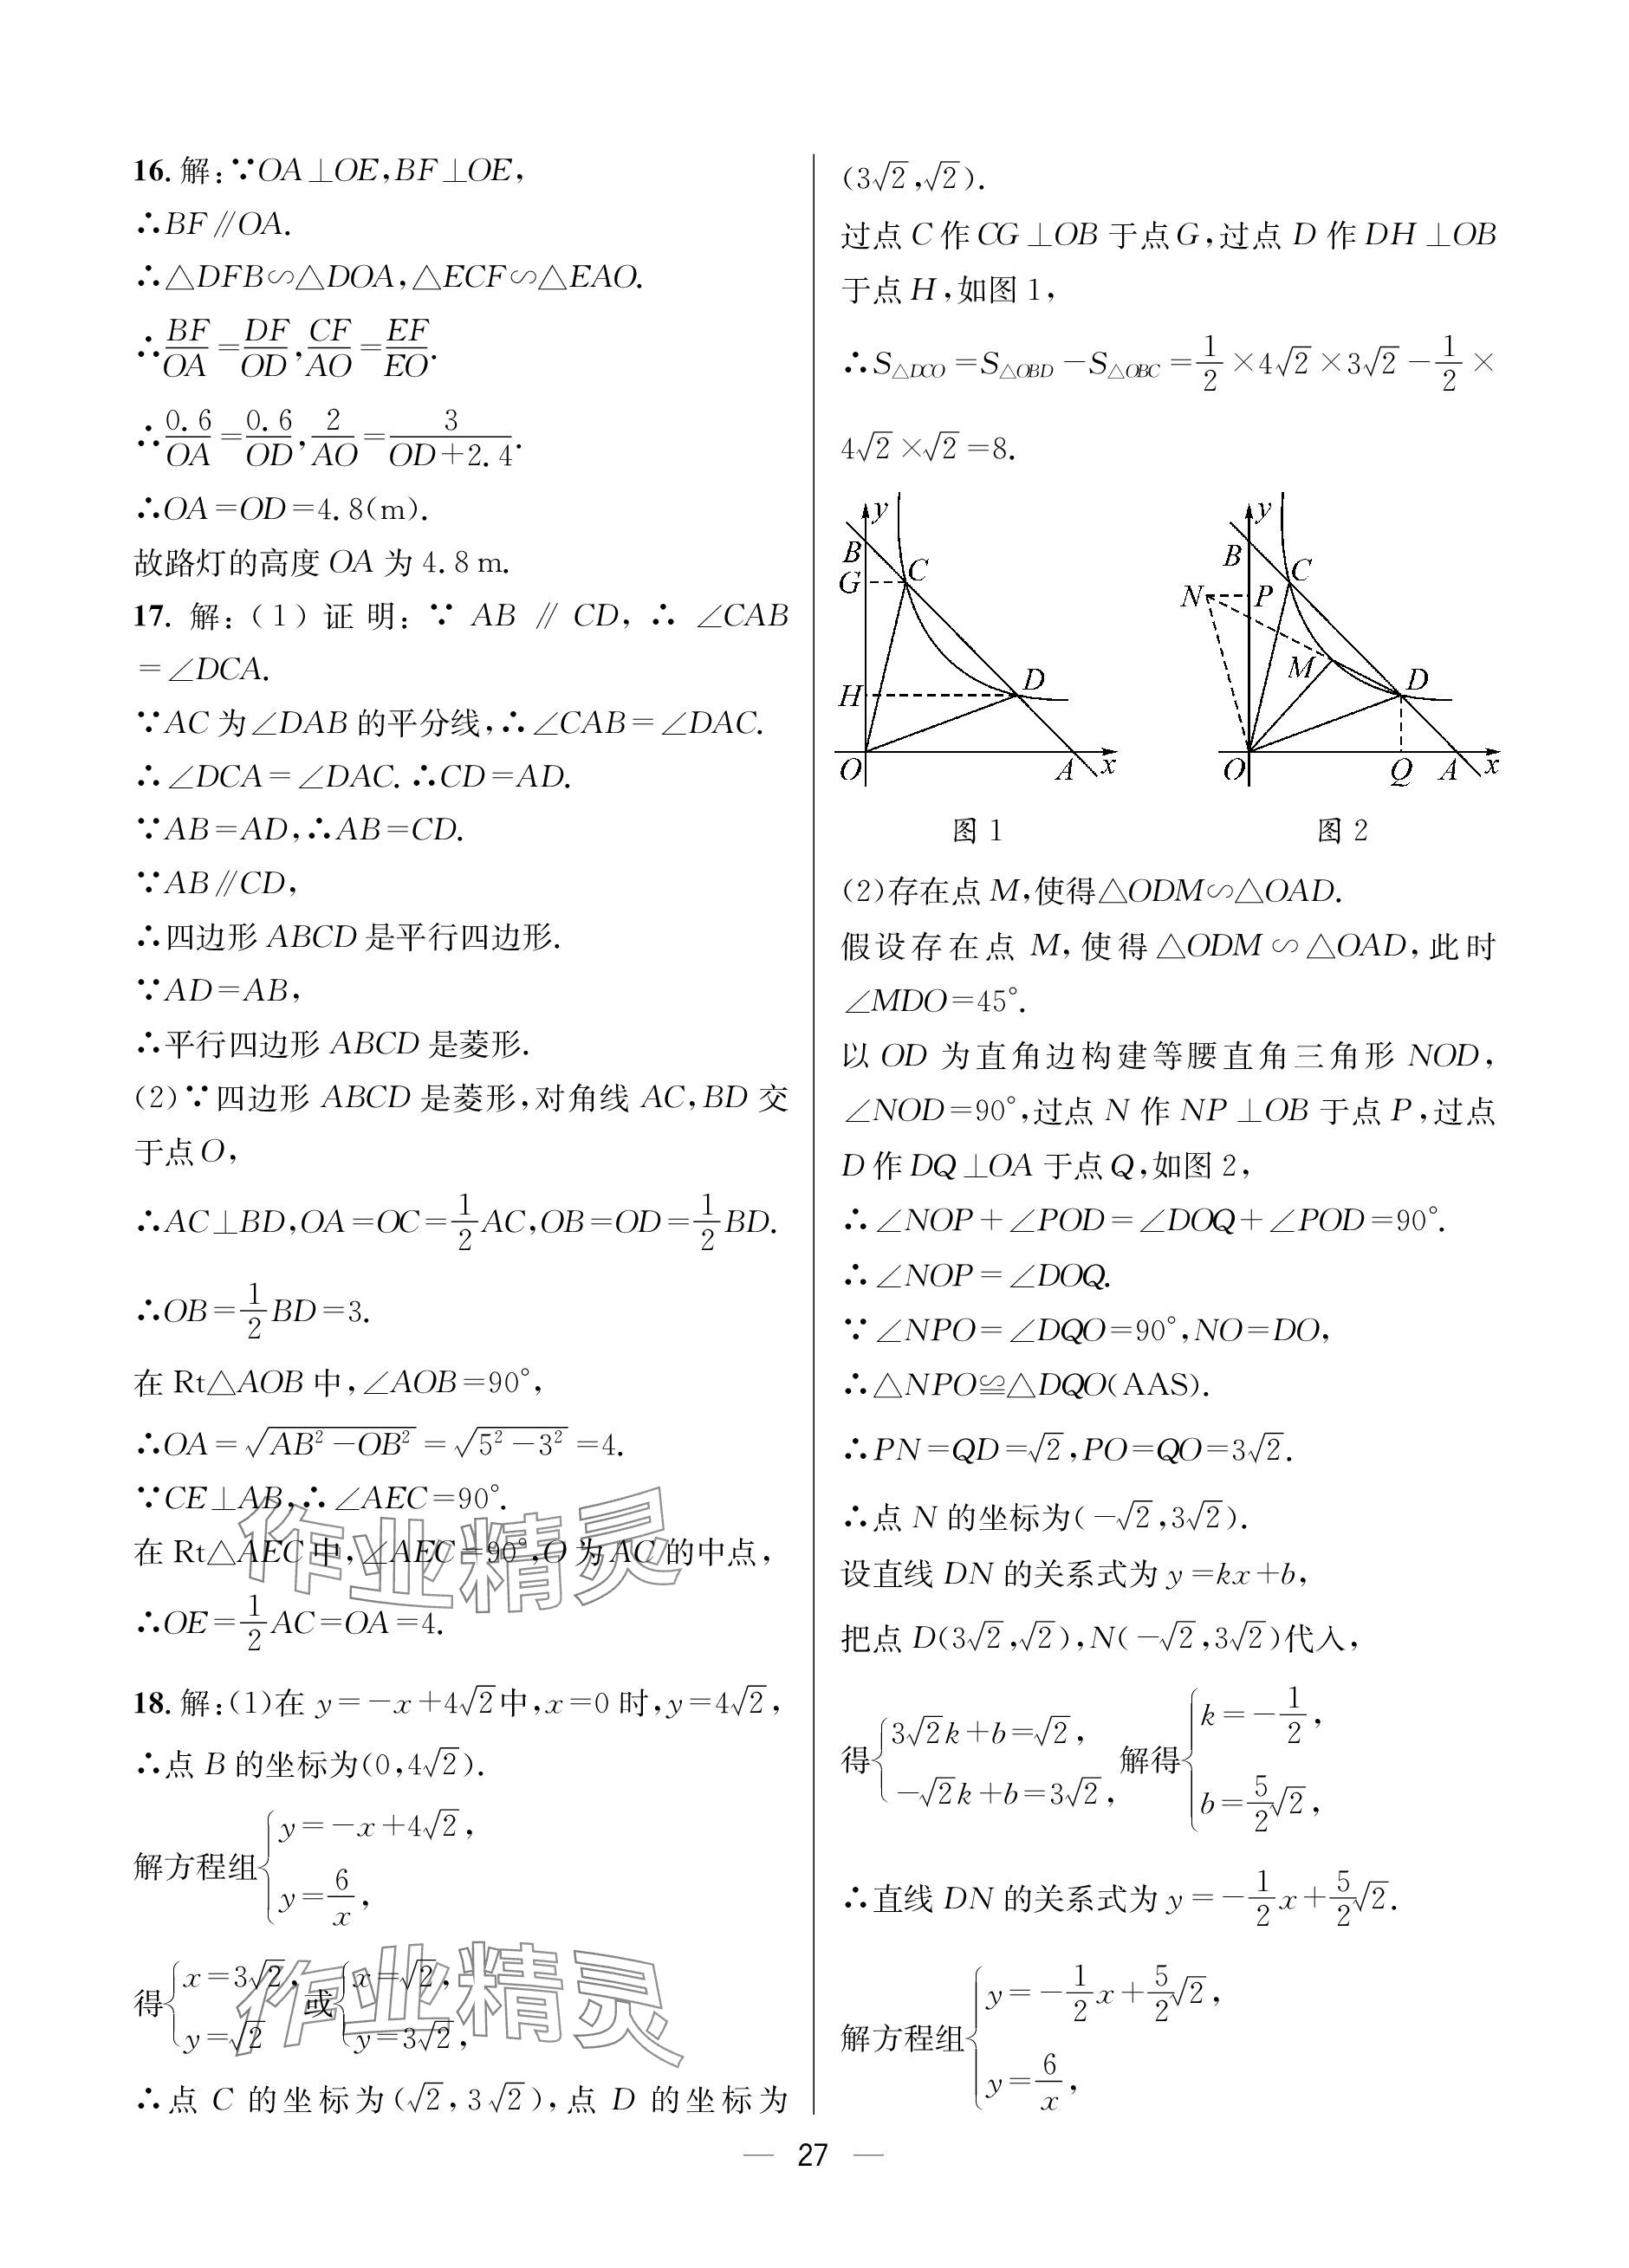 16. 解:∵OA⊥OE,BF⊥OE,
∴BF∥OA.
∴△DFB∽△DOA,△ECF∽△EAO.
∴BF/OA=DF/OD,CF/AO=EF/EO.
∴0.6/OA=0.6/OD,2/AO=3/(OD+2.4).
∴OA=OD=4.8(m).
故路灯的高度 OA 为 4.8 m.
17. 解:(1) 证明: ∵ AB ∥ CD, ∴ ∠CAB
=∠DCA.
∵AC 为∠DAB 的平分线,∴∠CAB=∠DAC.
∴∠DCA=∠DAC. ∴CD=AD.
∵AB=AD,∴AB=CD.
∵AB∥CD,
∴四边形 ABCD 是平行四边形.
∵AD=AB,
∴平行四边形 ABCD 是菱形.
(2)∵四边形 ABCD 是菱形,对角线 AC,BD 交
于点 O,
∴AC⊥BD,OA=OC=1/2 AC,OB=OD=1/2 BD.
∴OB=1/2 BD=3.
在 Rt△AOB 中,∠AOB=90°,
∴OA=√(AB²-OB²)=√(5²-3²)=4.
∵CE⊥AB,∴∠AEC=90°.
在 Rt△AEC 中,∠AEC=90°,O 为 AC 的中点,
∴OE=1/2 AC=OA=4.
18. 解:(1)在 y=-x+4√2中,x=0 时,y=4√2,
∴点 B 的坐标为(0,4√2).
解方程组{y=-x+4√2,
y=6/x,
得{x=3√2, y=√2 或{x=√2, y=3√2,
∴点 C 的坐标为(√2,3√2),点 D 的坐标为
(3√2,√2).
过点 C 作 CG⊥OB 于点 G,过点 D 作 DH⊥OB
于点 H,如图 1,
∴S△DCO=S△OBD-S△OBC=1/2×4√2×3√2-1/2×
4√2×√2=8.
y
B
C
G
H
D
O
A
x
图 1
y
B
C
N
P
M
D
O
Q
A
x
图 2
(2)存在点 M,使得△ODM∽△OAD.
假设存在点 M,使得△ODM∽△OAD,此时
∠MDO=45°.
以 OD 为直角边构建等腰直角三角形 NOD,
∠NOD=90°,过点 N 作 NP⊥OB 于点 P,过点
D 作 DQ⊥OA 于点 Q,如图 2,
∴∠NOP+∠POD=∠DOQ+∠POD=90°.
∴∠NOP=∠DOQ.
∵∠NPO=∠DQO=90°,NO=DO,
∴△NPO≌△DQO(AAS).
∴PN=QD=√2,PO=QO=3√2.
∴点 N 的坐标为(-√2,3√2).
设直线 DN 的关系式为 y=kx+b,
把点 D(3√2,√2),N(-√2,3√2)代入,
得{3√2k+b=√2, -√2k+b=3√2, 解得{k=-1/2, b=5/2√2,
∴直线 DN 的关系式为 y=-1/2x+5/2√2.
解方程组{y=-1/2x+5/2√2,
y=6/x,
作业精灵
作业精灵
— 27 —